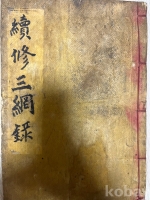 續修三綱錄
koba